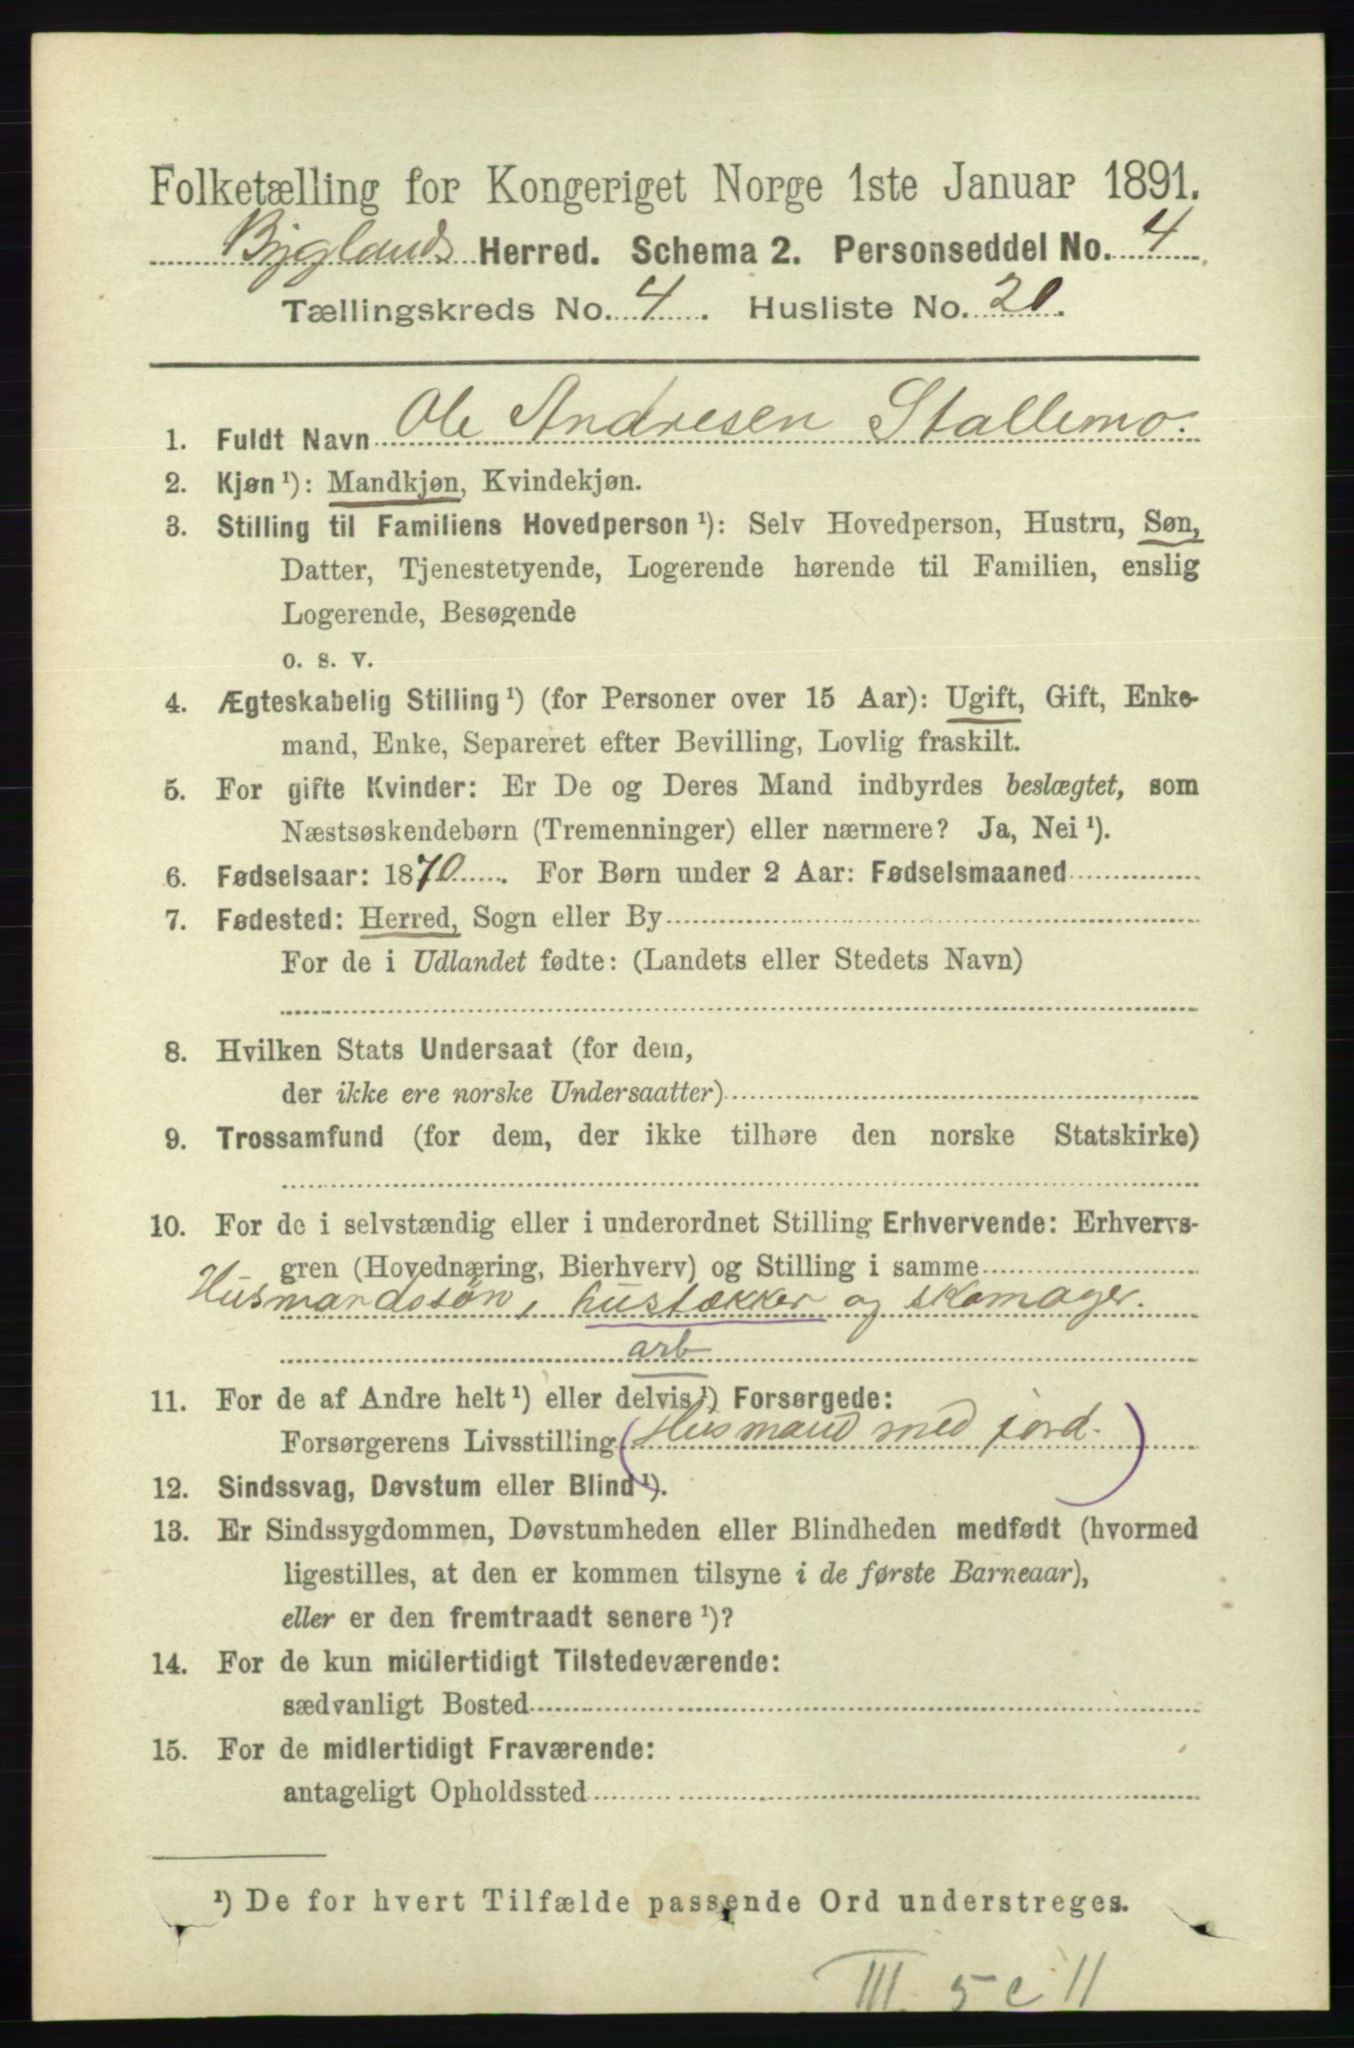 Folketælling for Kongeriget Norge 1ste Januar 1891.
Byglands Herred. Schema 2. Personseddel No. 4
Tællingskreds No. 4. Husliste No. 20.
1. Fuldt Navn Ole Andresen Stallemo.
2. Kjøn ¹): Mandkjøn, Kvindekjøn.
3. Stilling til Familiens Hovedperson ¹): Selv Hovedperson, Hustru, Søn,
Datter, Tjenestetyende, Logerende hørende til Familien, enslig
Logerende, Besøgende
o. s. v.
4. Ægteskabelig Stilling ¹) (for Personer over 15 Aar): Ugift, Gift, Enke-
mand, Enke, Separeret efter Bevilling, Lovlig fraskilt.
5. For gifte Kvinder: Er De og Deres Mand indbyrdes beslægtet, som
Næstsøskendebørn (Tremenninger) eller nærmere? Ja, Nei ¹).
6. Fødselsaar: 1870. For Børn under 2 Aar: Fødselsmaaned
7. Fødested: Herred, Sogn eller By
For de i Udlandet fødte: (Landets eller Stedets Navn)
8. Hvilken Stats Undersaat (for dem,
der ikke ere norske Undersaatter)
9. Trossamfund (for dem, der ikke tilhøre den norske Statskirke)
10. For de i selvstændig eller i underordnet Stilling Erhvervende: Erhvervs-
gren (Hovednæring, Bierhverv) og Stilling i samme
Husmandssøn, hustækker og skomager.
arb
11. For de af Andre helt ¹) eller delvis ¹) Forsørgede:
Forsørgerens Livsstilling (Husmand med jord.)
12. Sindssvag, Døvstum eller Blind ¹).
13. Er Sindssygdommen, Døvstumheden eller Blindheden medfødt (hvormed
ligestilles, at den er kommen tilsyne i de første Barneaar),
eller er den fremtraadt senere ¹)?
14. For de kun midlertidigt Tilstedeværende:
sædvanligt Bosted
15. For de midlertidigt Fraværende:
antageligt Opholdssted
¹) De for hvert Tilfælde passende Ord understreges.
III. 5 c 11